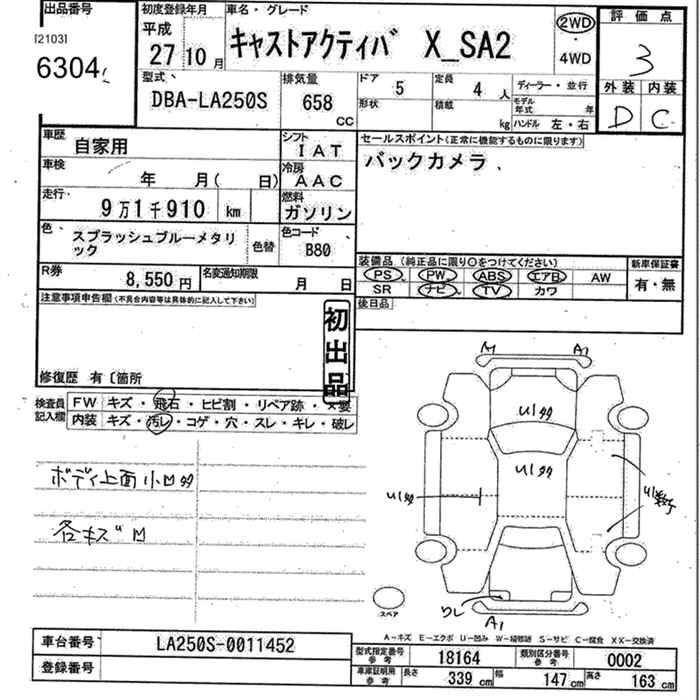 出品番号
[2103]
6304
初度登録年月
平成
27 10月
車名・グレード
キャストアクティバ X_SA2
2WD
・
4WD
評価点
3
外装 内装
D C
型式
DBA-LA250S
排気量
658
CC
ドア 5
定員 4 人
形状
積載 kg
ディーラー・並行
モデル年式 年
ハンドル 左・右
車歴
自家用
シフト
IAT
車検
年 月( 日)
冷房
AAC
走行
9万1千910 km
燃料
ガソリン
色
スプラッシュブルーメタリック
色替
色コード
B80
R券
8,550円
名変通知期限
月 日
セールスポイント(正常に機能するものに限ります)
バックカメラ
装備品(純正品に限り○をつけてください)
PS PW ABS エアB AW
SR ナビ TV カワ
新車保証書
有・無
後日品
注意事項申告欄(不具合内容等は具体的に記入して下さい)
初出品
修復歴 有〔箇所
検査員記入欄
FW キズ・飛石・ヒビ割・リペア跡・×要
内装 キズ・汚レ・コゲ・穴・スレ・キレ・破レ
ボディ上面小凹多
各キズ凹
A1 A1
U1多
U1多
U1多
U1
ワレ
A1
スペア
A-キズ E-エクボ U-凹み W-補修跡 S-サビ C-腐食 XX-交換済
車台番号
LA250S-0011452
登録番号
型式指定番号
参考
18164
類別区分番号
参考
0002
車庫証明用
参考
長さ 339 cm
幅 147 cm
高さ 163 cm